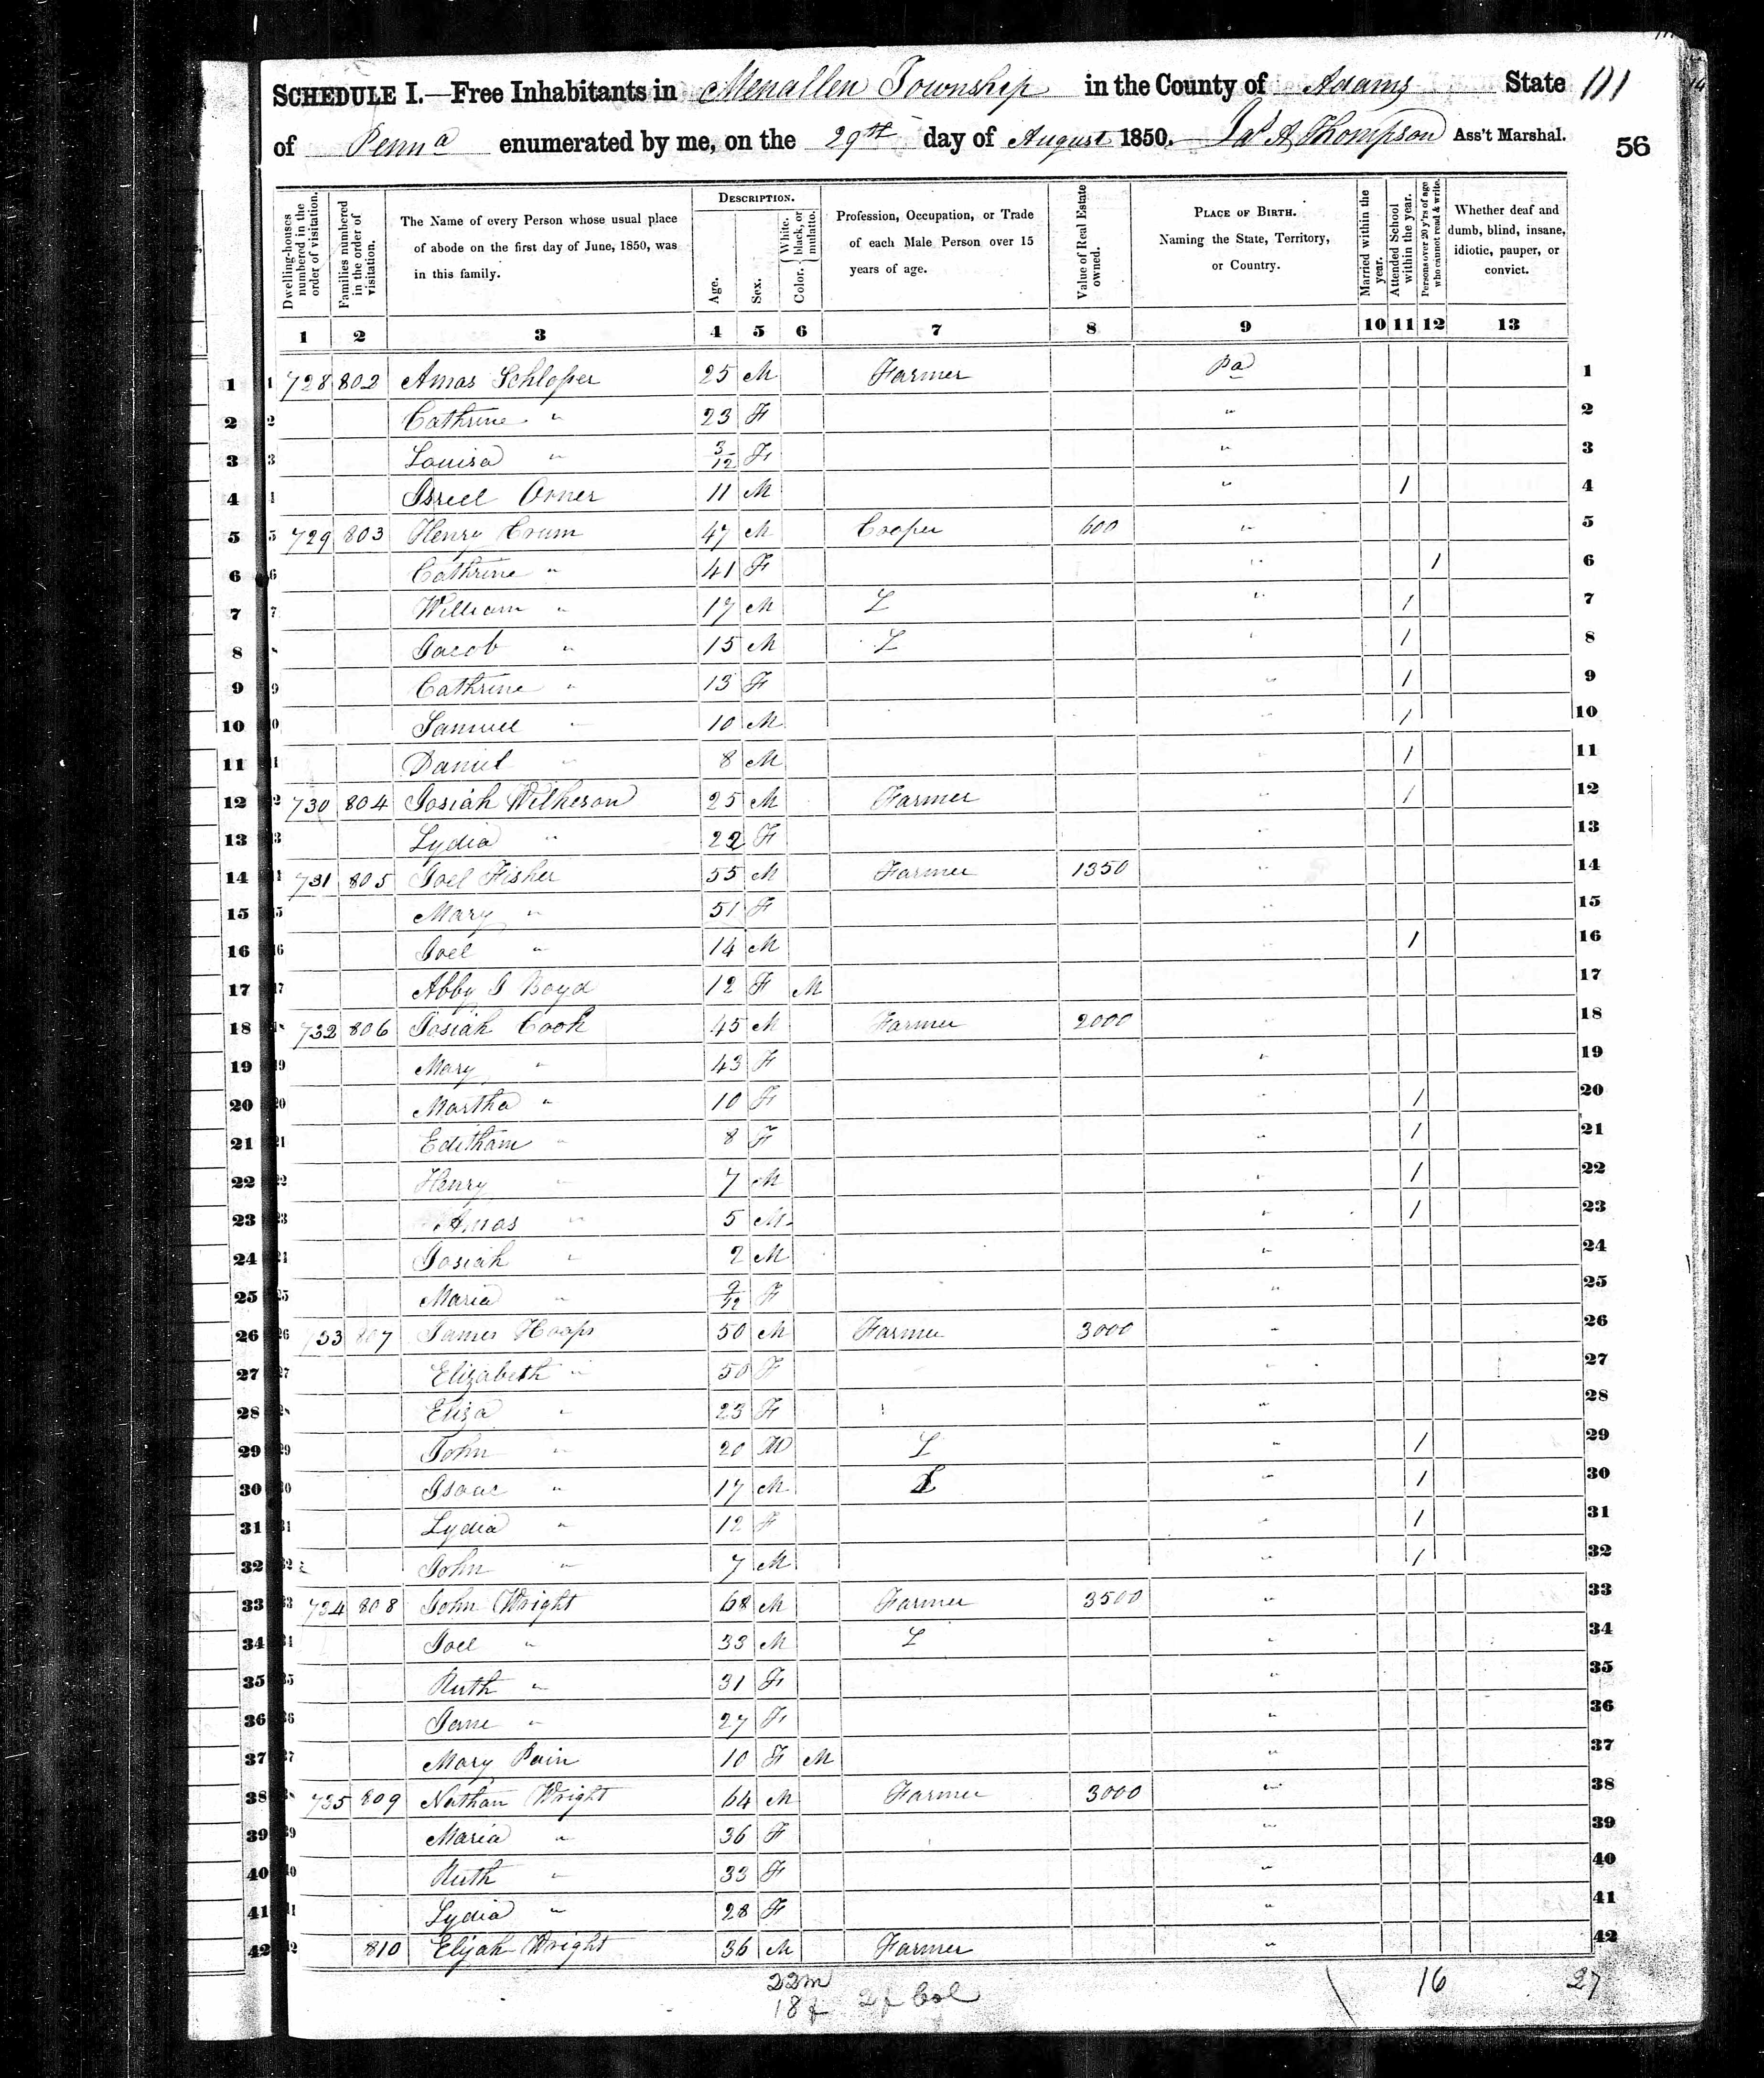 SCHEDULE I.—Free Inhabitants in Menallen Township in the County of Adams State 111
of Penna enumerated by me, on the 29th day of August 1850. Jas A Thompson Ass't Marshal. 56
Dwelling-houses numbered in the order of visitation.
Families numbered in the order of visitation.
The Name of every Person whose usual place of abode on the first day of June, 1850, was in this family.
DESCRIPTION.
Age.
Sex.
Color. { White, black, or mulatto.
Profession, Occupation, or Trade of each Male Person over 15 years of age.
Value of Real Estate owned.
PLACE OF BIRTH. Naming the State, Territory, or Country.
Married within the year.
Attended School within the year.
Persons over 20 y'rs of age who cannot read & write.
Whether deaf and dumb, blind, insane, idiotic, pauper, or convict.
1 2 3 4 5 6 7 8 9 10 11 12 13
1 728 802 Amos Schlosser 25 M Farmer Pa 1
2 Cathrine " 23 F " 2
3 Louisa " 3/12 F " 3
4 Isreel Orner 11 M " 1 4
5 729 803 Henry Crum 47 M Cooper 600 " 5
6 Cathrine " 41 F " 1 6
7 William " 17 M L " 1 7
8 Jacob " 15 M L " 1 8
9 Cathrine " 13 F " 1 9
10 Samuel " 10 M " 1 10
11 Daniel " 8 M " 1 11
12 730 804 Josiah Wilkeson 25 M Farmer " 1 12
13 Lydia " 22 F " 13
14 731 805 Joel Fisher 55 M Farmer 1350 " 14
15 Mary " 51 F " 15
16 Joel " 14 M " 1 16
17 Abby J Boyd 12 F M 17
18 732 806 Josiah Cook 45 M Farmer 2000 " 18
19 Mary " 43 F " 19
20 Martha " 10 F " 1 20
21 Edithann " 8 F " 1 21
22 Henry " 7 M " 1 22
23 Amos " 5 M " 1 23
24 Josiah " 2 M " 24
25 Maria " /12 F " 25
26 733 807 James Hoops 50 M Farmer 3000 " 26
27 Elizabeth " 50 F " 27
28 Eliza " 23 F " 28
29 John " 20 M L " 1 29
30 Isaac " 17 M L " 1 30
31 Lydia " 12 F " 1 31
32 John " 7 M " 1 32
33 734 808 John Wright 68 M Farmer 3500 " 33
34 Joel " 33 M L " 34
35 Ruth " 31 F " 35
36 Jane " 27 F " 36
37 Mary Pain 10 F M " 37
38 735 809 Nathan Wright 64 M Farmer 3000 " 38
39 Maria " 36 F " 39
40 Ruth " 33 F " 40
41 Lydia " 28 F " 41
42 810 Elijah Wright 36 M Farmer " 42
22m 16 27
18f 2f Col